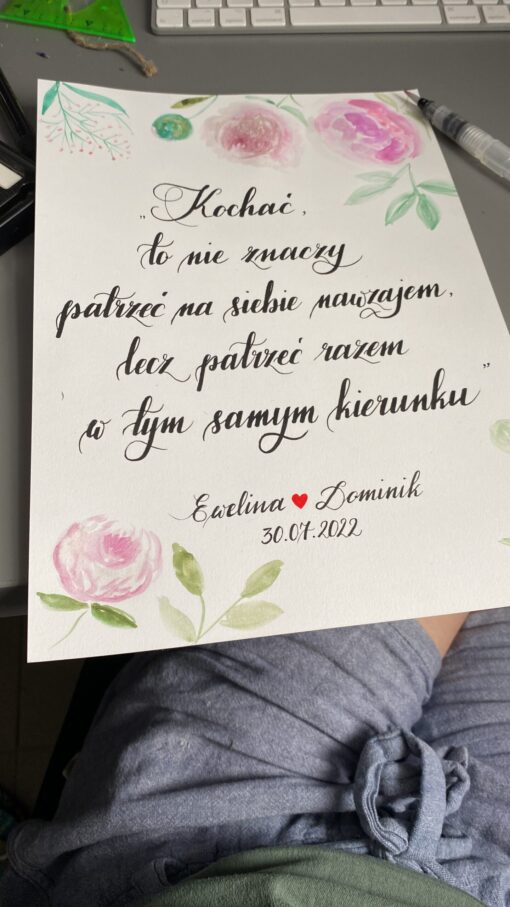 „Kochać,
to nie znaczy
patrzeć na siebie nawzajem,
lecz patrzeć razem
w tym samym kierunku”
Ewelina ♥ Dominik
30.07.2022